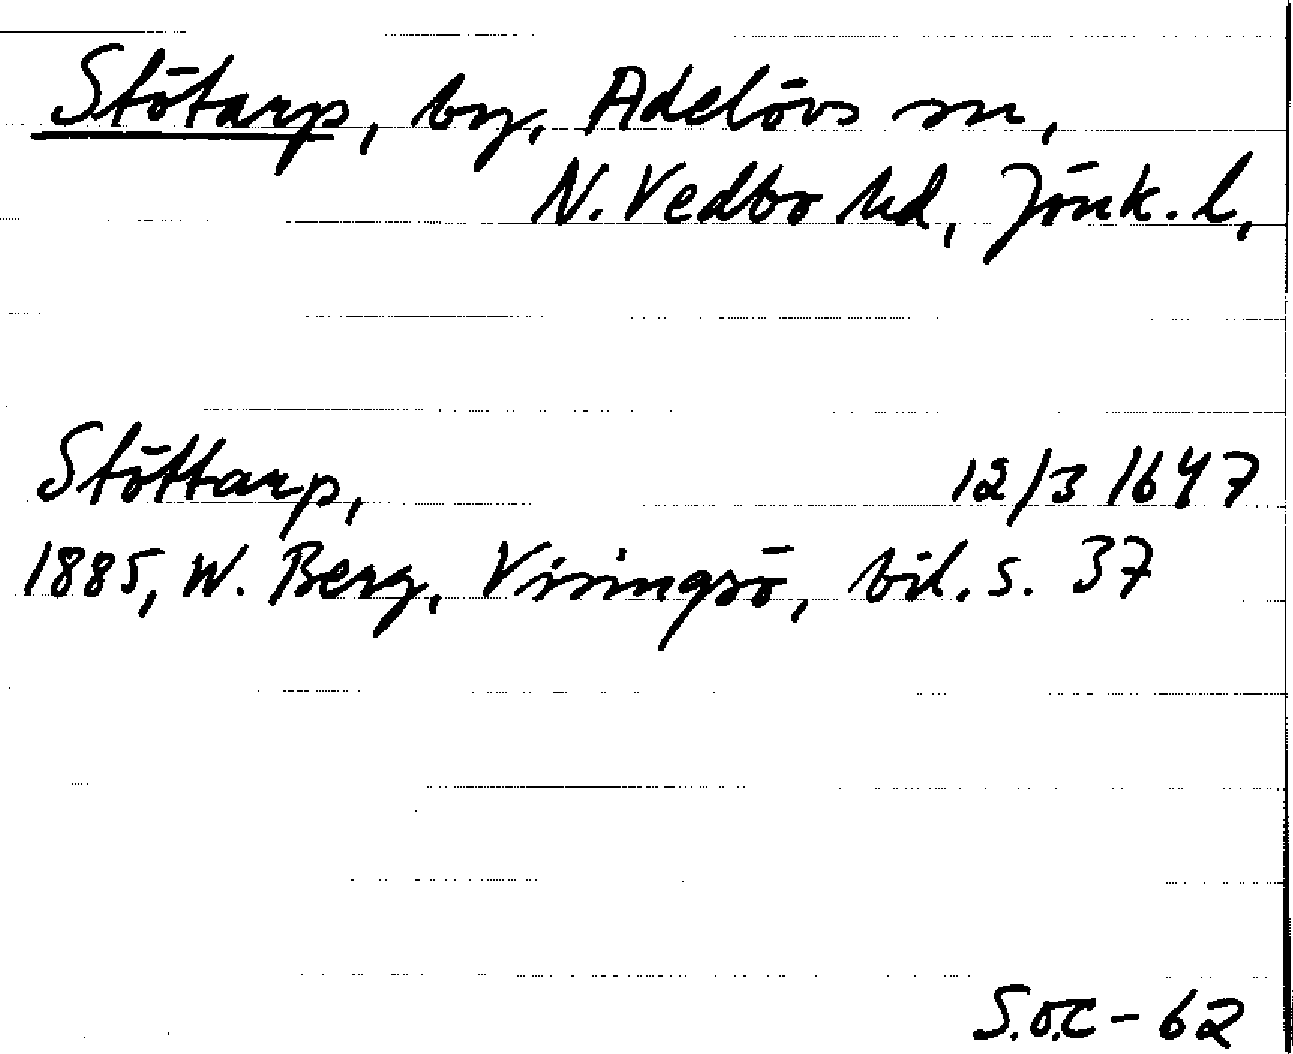 Stötarp, by, Adelövs sn,
N. Vedbo hd, Jönk. l,
Stöttarp, 12/3 1647
1885, W. Berg, Visingsö, bil. s. 37
S.Ö.C-62